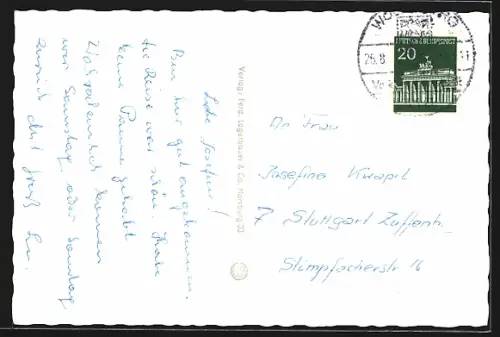 Liebe Josefine!
Bin hier gut angekommen.
die Reise war schön. Habe
keine Panne gehabt
Wahrscheinlich komme
wir Samstag oder Sonntag
zurück
An Frau
Josefine Kwapil
7 Stuttgart Zuffenh.
Stimpfacherstr 16
Verlag: Ferd. Lagerbauer & Co., Hamburg 33
DEUTSCHE BUNDESPOST
20
25.8